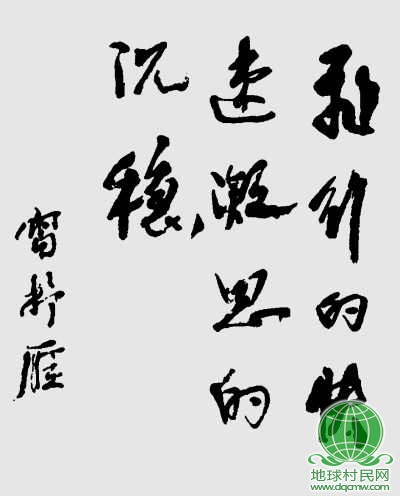 飛行的快
速凝思的
沉穩
雷抒雁
地球村民网
www.dqcmw.com